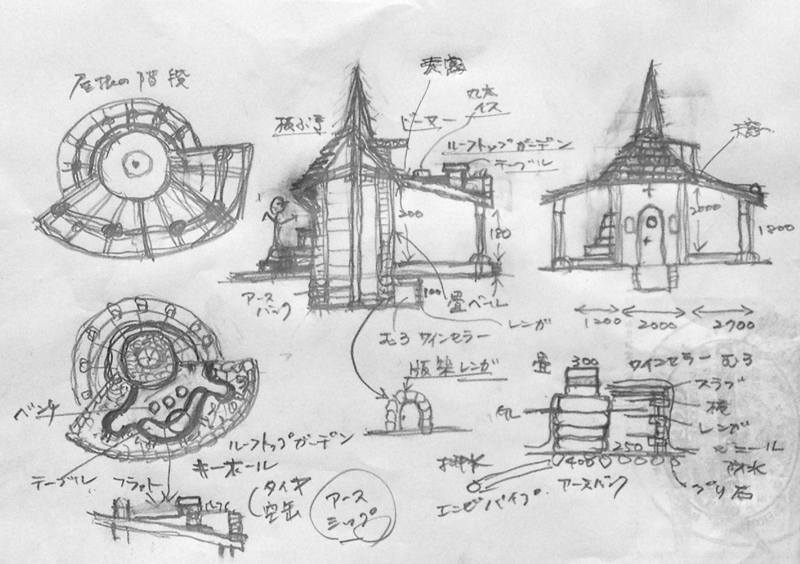 屋根の階段
天窓
丸太
イス
板小羽
ドーマー
ルーフトップガーデン
テーブル
天窓
200
180
2000
1800
アース
バンク
100
畳ベール
レンガ
むろ ワインセラー
1200
2000
2700
版築レンガ
畳
300
ワインセラー むろ
スラブ
レンガ
ビニール
防水
250
400
グリ石
アースバンク
エンビパイプ
ベンチ
ルーフトップガーデン
キーホール
テーブル
フラット
タイヤ
空缶
アース
シップ